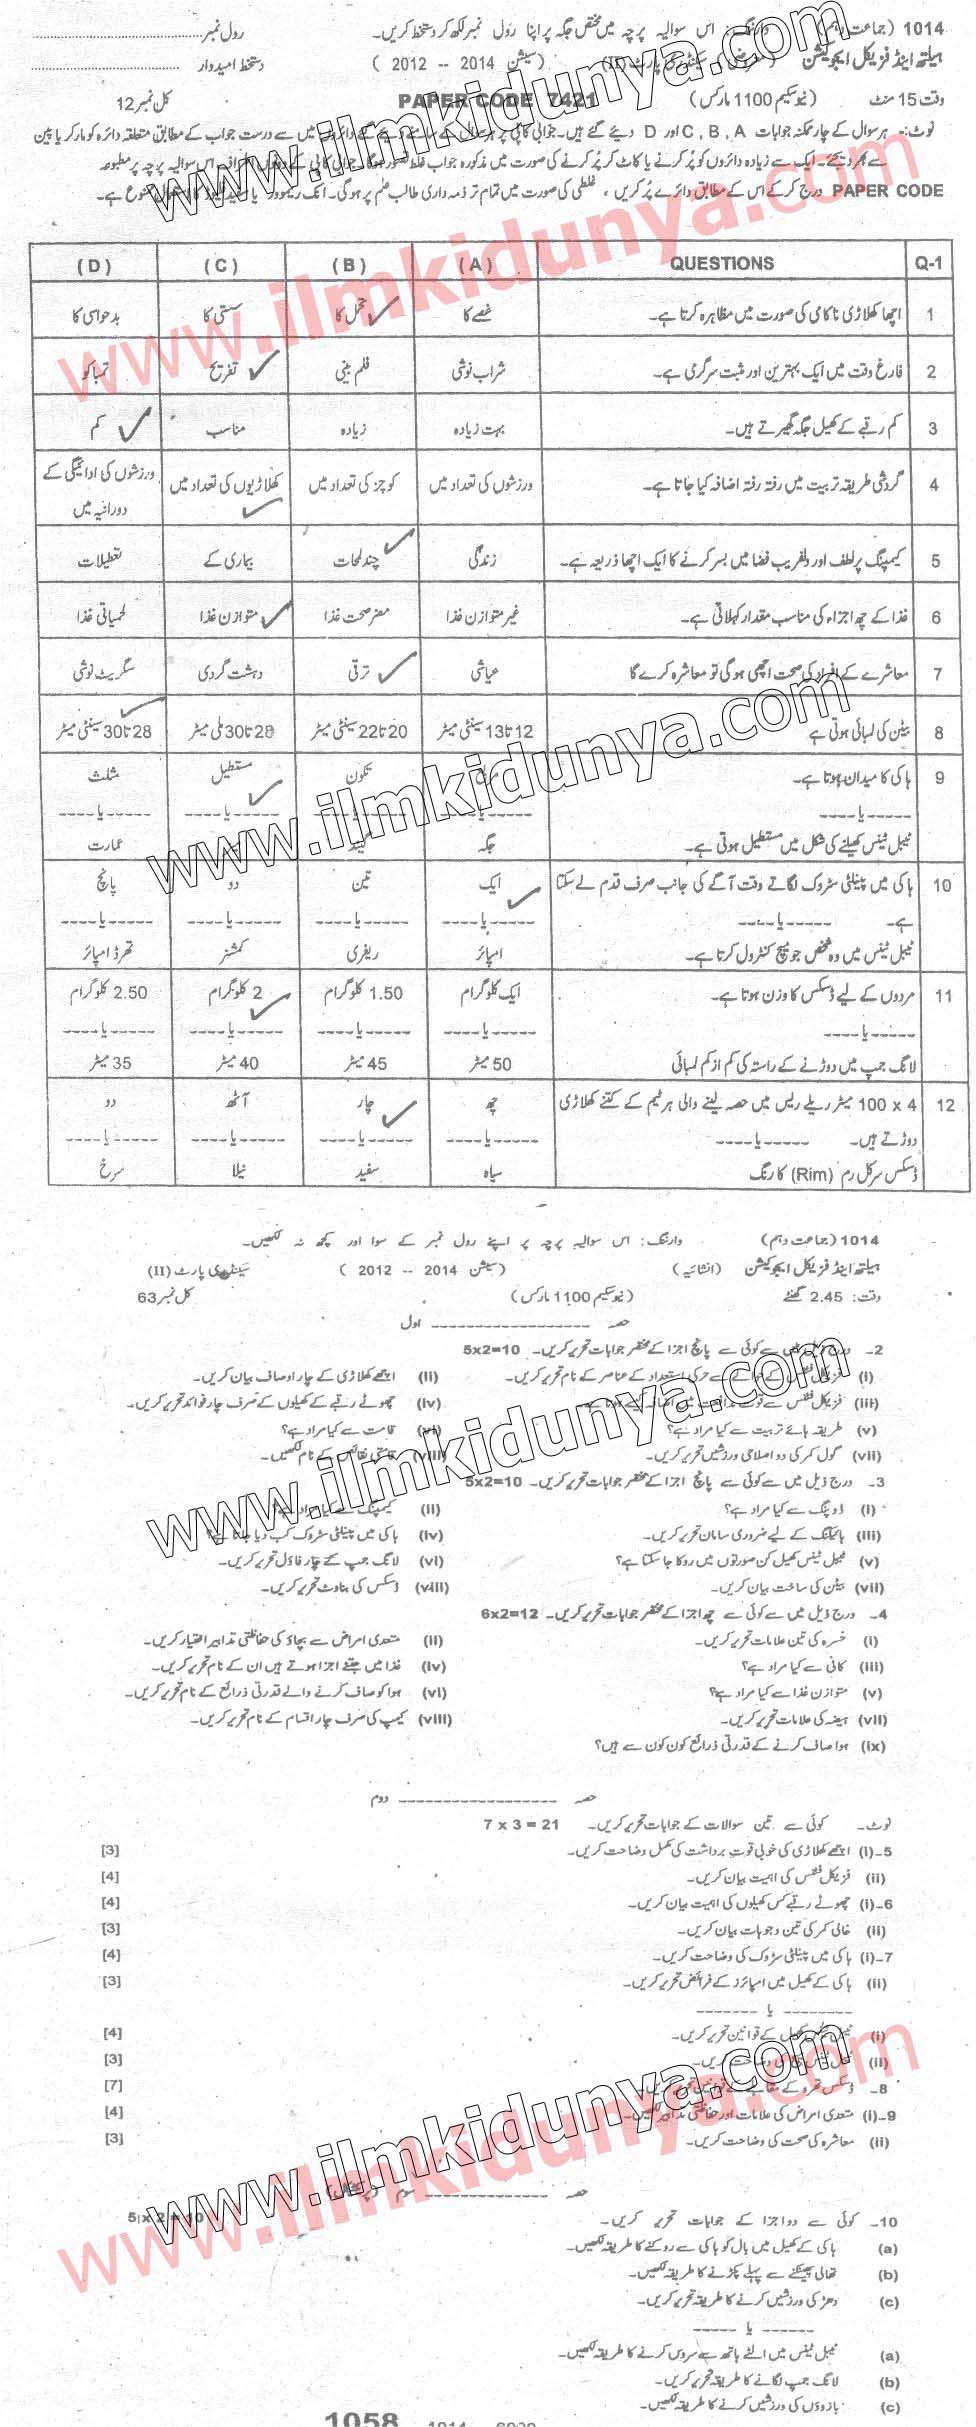 1014 (جماعت دہم) وارننگ: اس سوالیہ پرچہ میں مختص جگہ پر اپنا رول نمبر لکھ کر دستخط کریں۔ رول نمبر
ہیلتھ اینڈ فزیکل ایجوکیشن (معروضی) سیکنڈری پارٹ (II) (سیشن 2014 -- 2012) دستخط امیدوار
وقت 15 منٹ (نیو سکیم 1100 مارکس) PAPER CODE 7421 کل نمبر 12
نوٹ:۔ ہر سوال کے چار ممکنہ جوابات C , B , A اور D دیئے گئے ہیں۔ جوابی کاپی پر ہر سال کے سامنے دیئے گئے دائروں میں سے درست جواب کے مطابق متعلقہ دائرہ کو مارکر یا پین
سے بھر دیجئے۔ ایک سے زیادہ دائروں کو پُر کرنے یا کاٹ کر پُر کرنے کی صورت میں مذکورہ جواب غلط تصور ہوگا۔ جوابی کاپی کے دونوں اطراف اس سوالیہ پرچہ پر مطبوعہ
PAPER CODE درج کر کے اس کے مطابق دائرے پُر کریں ، غلطی کی صورت میں تمام تر ذمہ داری طالب علم پر ہوگی۔ انک ریموور یا سفید فلیوڈ کا استعمال ممنوع ہے۔
Q-1 QUESTIONS (A) (B) (C) (D)
1 اچھا کھلاڑی ناکامی کی صورت میں مظاہرہ کرتا ہے۔ غصے کا تحمل کا سستی کا بدحواسی کا
2 فارغ وقت میں ایک بہترین اور مثبت سرگرمی ہے۔ شراب نوشی فلم بینی تفریح تمباکو
3 کم رقبے کے کھیل جگہ گھیرتے ہیں۔ بہت زیادہ زیادہ مناسب کم
4 گردشی طریقہ تربیت میں رفتہ رفتہ اضافہ کیا جاتا ہے۔ ورزشوں کی تعداد میں کوچز کی تعداد میں کھلاڑیوں کی تعداد میں ورزشوں کی ادائیگی کے دورانیہ میں
5 کیمپنگ پر لطف اور دلفریب فضا میں بسر کرنے کا ایک اچھا ذریعہ ہے۔ زندگی چند لمحات بیماری کے تعطیلات
6 غذا کے چھ اجزاء کی مناسب مقدار کہلاتی ہے۔ غیر متوازن غذا مضر صحت غذا متوازن غذا لحمیاتی غذا
7 معاشرے کے افراد کی صحت اچھی ہوگی تو معاشرہ کرے گا عیاشی ترقی دہشت گردی سگریٹ نوشی
8 بیٹن کی لمبائی ہوتی ہے 12 تا 13 سینٹی میٹر 20 تا 22 سینٹی میٹر 28 تا 30 ملی میٹر 28 تا 30 سینٹی میٹر
9 ہاکی کا میدان ہوتا ہے۔ مربع تکون مستطیل مثلث
----- یا ----- ----- یا ----- ----- یا ----- ----- یا ----- ----- یا -----
ٹیبل ٹینس کھیلنے کی شکل میں مستطیل ہوتی ہے۔ جگہ گیند عمارت
10 ہاکی میں پینلٹی سٹروک لگاتے وقت آگے کی جانب صرف قدم لے سکتا ایک تین دو پانچ
ہے۔ ----- یا ----- ----- یا ----- ----- یا ----- ----- یا ----- ----- یا -----
ٹیبل ٹینس میں وہ شخص جو میچ کنٹرول کرتا ہے۔ امپائر ریفری کمشنر تھرڈ امپائر
11 مردوں کے لیے ڈسکس کا وزن ہوتا ہے۔ ایک کلوگرام 1.50 کلوگرام 2 کلوگرام 2.50 کلوگرام
----- یا ----- ----- یا ----- ----- یا ----- ----- یا ----- ----- یا -----
لانگ جمپ میں دوڑنے کے راستہ کی کم از کم لمبائی 50 میٹر 45 میٹر 40 میٹر 35 میٹر
12 4 x 100 میٹر ریلے ریس میں حصہ لینے والی ہر ٹیم کے کتنے کھلاڑی چھ چار آٹھ دو
دوڑتے ہیں۔ ----- یا ----- ----- یا ----- ----- یا ----- ----- یا ----- ----- یا -----
ڈسکس سرکل رم (Rim) کا رنگ سیاہ سفید نیلا سرخ
1014 (جماعت دہم) وارننگ: اس سوالیہ پرچہ پر اپنے رول نمبر کے سوا اور کچھ نہ لکھیں۔
ہیلتھ اینڈ فزیکل ایجوکیشن (انشائیہ) (سیشن 2014 -- 2012) سیکنڈری پارٹ (II)
وقت: 2.45 گھنٹے (نیو سکیم 1100 مارکس) کل نمبر 63
حصہ ---------------- اول
2۔ درج ذیل میں سے کوئی سے پانچ اجزا کے مختصر جوابات تحریر کریں۔ 5x2=10
(i) فزیکل فٹنس کے حوالے سے حرکی استعداد کے عناصر کے نام تحریر کریں۔ (ii) اچھے کھلاڑی کے چار اوصاف بیان کریں۔
(iii) فزیکل فٹنس سے قوت مدافعت میں اضافہ کیسے ہوتا ہے۔ (iv) چھوٹے رقبے کے کھیلوں کے صرف چار فوائد تحریر کریں۔
(v) طریقہ ہائے تربیت سے کیا مراد ہے؟ (vi) قامت سے کیا مراد ہے؟
(vii) گول کمر کی دو اصلاحی ورزشیں تحریر کریں۔ (viii) قامتی نقائص کے نام لکھیں۔
3۔ درج ذیل میں سے کوئی سے پانچ اجزا کے مختصر جوابات تحریر کریں۔ 5x2=10
(i) ڈوپنگ سے کیا مراد ہے؟ (ii) کیمپنگ سے کیا مراد ہے؟
(iii) ہائیکنگ کے لیے ضروری سامان تحریر کریں۔ (iv) ہاکی میں پینلٹی سٹروک کب دیا جاتا ہے؟
(v) ٹیبل ٹینس کھیل کن صورتوں میں روکا جا سکتا ہے؟ (vi) لانگ جمپ کے چار فاؤل تحریر کریں۔
(vii) بیٹن کی ساخت بیان کریں۔ (viii) ڈسکس کی بناوٹ تحریر کریں۔
4۔ درج ذیل میں سے کوئی سے چھ اجزا کے مختصر جوابات تحریر کریں۔ 6x2=12
(i) خسرہ کی تین علامات تحریر کریں۔ (ii) متعدی امراض سے بچاؤ کی حفاظتی تدابیر اختیار کریں۔
(iii) کائی سے کیا مراد ہے؟ (iv) غذا میں جتنے اجزا ہوتے ہیں ان کے نام تحریر کریں۔
(v) متوازن غذا سے کیا مراد ہے؟ (vi) ہوا کو صاف کرنے والے قدرتی ذرائع کے نام تحریر کریں۔
(vii) ہیضہ کی علامات تحریر کریں۔ (viii) کیمپ کی صرف چار اقسام کے نام تحریر کریں۔
(ix) ہوا صاف کرنے کے قدرتی ذرائع کون کون سے ہیں؟
حصہ ---------------- دوم
نوٹ۔ کوئی سے تین سوالات کے جوابات تحریر کریں۔ 7 x 3 = 21
5۔(i) اچھے کھلاڑی کی خوبی قوت برداشت کی مکمل وضاحت کریں۔ [3]
(ii) فزیکل فٹنس کی اہمیت بیان کریں۔ [4]
6۔(i) چھوٹے رقبے کس کھیلوں کی اہمیت بیان کریں۔ [4]
(ii) خالی کمر کی تین وجوہات بیان کریں۔ [3]
7۔(i) ہاکی میں پینلٹی سٹروک کی وضاحت کریں۔ [4]
(ii) ہاکی کے کھیل میں امپائرز کے فرائض تحریر کریں۔ [3]
-------- یا -------
(i) ٹیبل ٹینس کھیل کے قوانین تحریر کریں۔ [4]
(ii) ٹیبل ٹینس کی وضاحت کریں۔ [3]
8۔ ڈسکس تھرو کے مقابلے کے قوانین تحریر کریں۔ [7]
9۔(i) متعدی امراض کی علامات اور حفاظتی تدابیر لکھیں۔ [4]
(ii) معاشرہ کی صحت کی وضاحت کریں۔ [3]
حصہ ---------------- سوم (پریکٹیکل)
10۔ کوئی سے دو اجزا کے جوابات تحریر کریں۔ 5 x 2 = 10
(a) ہاکی کے کھیل میں بال کو ہاکی سے روکنے کا طریقہ لکھیں۔
(b) تھالی پھینکنے سے پہلے پکڑنے کا طریقہ لکھیں۔
(c) دھڑ کی ورزشیں کرنے کا طریقہ تحریر کریں۔
------ یا -----
(a) ٹیبل ٹینس میں الٹے ہاتھ سے سروس کرنے کا طریقہ لکھیں۔
(b) لانگ جمپ لگانے کا طریقہ تحریر کریں۔
(c) بازوؤں کی ورزشیں کرنے کا طریقہ لکھیں۔
1058
www.ilmkidunya.com
www.ilmkidunya.com
www.ilmkidunya.com
www.ilmkidunya.com
www.ilmkidunya.com
www.ilmkidunya.com